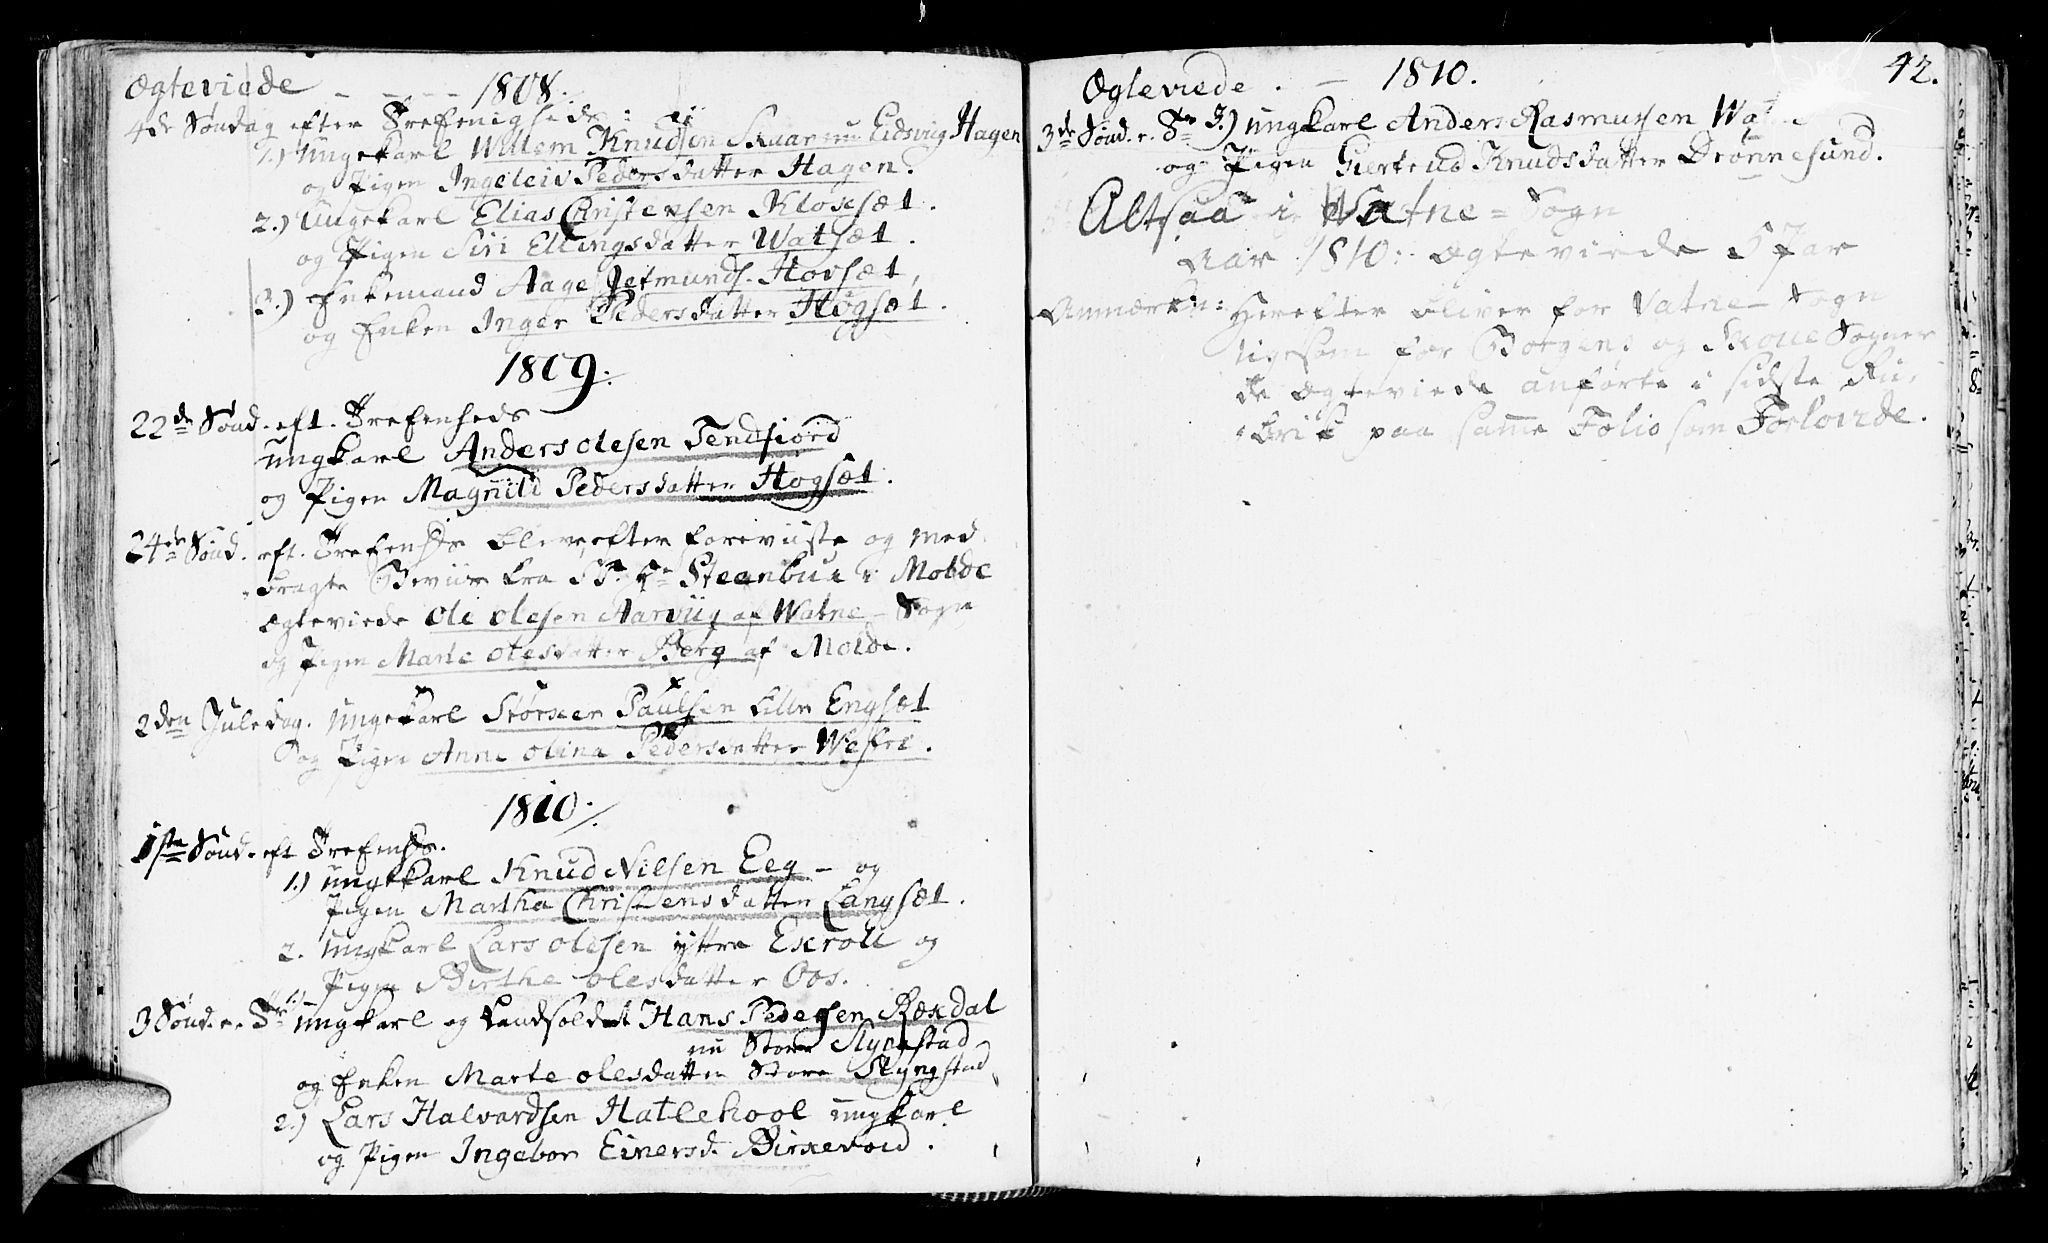 Ægteviede - - - - 1808.
4de Søndag efter Trefenigheds:
1.) Ungekarl Willem Knudsen Skaar nu Eidsviig Hagen
og Pigen Ingeleiv Pedersdatter Hagen.
2.) Ungekarl Elias Christensen Kloxsæt.
og Pigen Siri Ellingsdatter Watsæt.
3.) Enkemand Aage Jetmunds. Hovsæt,
og Enken Inger Pedersdatter Høgsæt.
1809.
22de Sønd. eft. Trefenheds
ungkarl Anders Olesen Tendfiord
og Pigen Magnild Pedersdatter Høgsæt.
24de Sønd. eft. Trefenhds blev efter foreviiste og med-
bragte Beviis fra Steenbue i Molde
Ægteviede Ole Olesen Aarviig af Watne-Sogn
og Pigen Marte Olesdatter Berg af Molde.
2den Juledag. Ungekarl Størker Paulsen lille Engsæt
og Pigen Anne Olina Pedersdatter Westre.
1810.
1ste Sønd. eft Trefenhds.
1.) ungkarl Knud Nilsen Eeg - og
Pigen Martha Christensdatter Langsæt.
2. ungkarl Lars Olesen yttre Exroll og
Pigen Birthe Olesdatter Oos.
3 Sønd. e. Tr 1.) ungkarl og Landsoldat Hans Pedersen Rexdal
nu Store Ryngstad
og Enken Marte Olesdatter Store Ryngstad
2.) Lars Halvardsen Hatlehool ungkarl
og Pigen Ingebor Einersd. Birkevold.
Ægteviede. - 1810. 42.
3de Sønd. e. Tr 3.) ungkarl Anders Rasmussen
og Pigen Giertrud Knudsdatter Brønnesund.
Altsaa i Watne-Sogn
Aar 1810: Ægteviede 5 Par
Anmærkn: Herefter bliver for Vatne-Sogn
ligesom for Borgens og Skoue Sogner
de Ægteviede anførte i sidste Ru-
brik paa samme Folio som Forlovede.